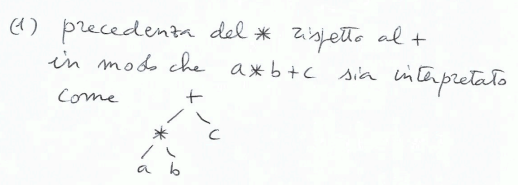 (1) precedenza del * rispetto al +
in modo che a*b+c sia interpretato
come +
* c
a b